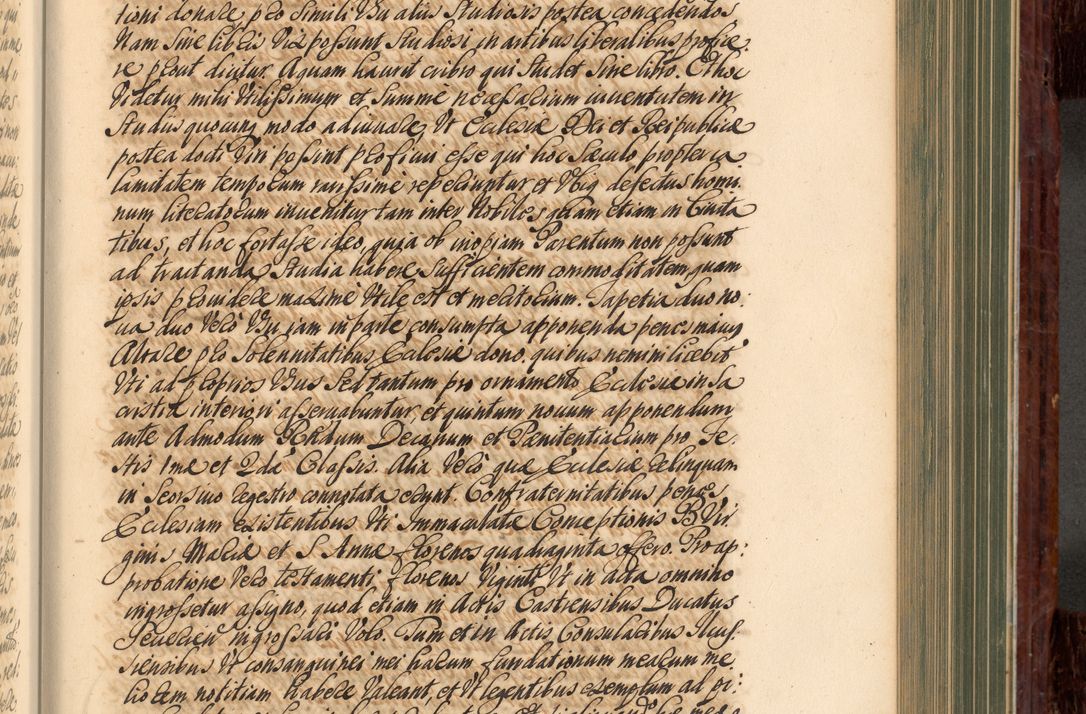 tioni donare pro simili Usu aliis Studiosis postea concedendos
Nam sine libris Vix possunt studiosi in artibus liberalibus profice¬
re prout dicitur. Aquam haurit cribro qui studet sine libro. Et hoc
Videtur mihi Utilissimum et summe necessarium iuventutem in
studiis quocunq modo adiuuare, Ut Ecclesiæ Dei et Reipublicæ
postea docti Viri possint proficui esse qui hoc Sæculo propter ca
lamitatem temporum rarissime reperiuntur et Ubiq defectus homi¬
num literatorum inuenitur tam inter Nobiles quam etiam in Ciuita
tibus, et hoc fortasse ideo, quia ob inopiam Parentum non possunt
ad tractanda Studia habere sufficientem commoditatem quam
ipsis prouidere maxime Utile est et meritorium. Tapetia duo no¬
ua duo Vero Usu iam in parte consumpta apponenda penes maius
Altare pro Solennitatibus Ecclesiæ dono. quibus nemini licebit
Uti ad proprios Usus sed tantum pro ornamento Ecclesiæ in Sa
cristia interiori asseruabuntur, et quintum nouum apponendum
ante Admodum Rndum Decanum et Pænitentiarium pro Fe¬
stis 1mæ et 2dæ Classis. Alia Vero quæ Ecclesiæ relinquam
in Seorsiuo regestro connotata erunt. Confraternitatibus penes
Ecclesiam existentibus Uti Immaculatæ Conceptionis B Vir
ginis Mariæ et S Annæ florenos quadraginta offero. Pro ap:
probatione Vero testamenti florenos Viginti Ut in acta omnino
ingrossetur assigno, quod etiam in Actis Castrensibus Ducatus
Seuerien ingrossari Volo. Tum et in Actis Consularibus Ilkus¬
siensibus Ut consanguinei mei harum fundationum mearum me¬
liorem notitiam habere Valeant, et Ut legentibus exemplum ad pi: